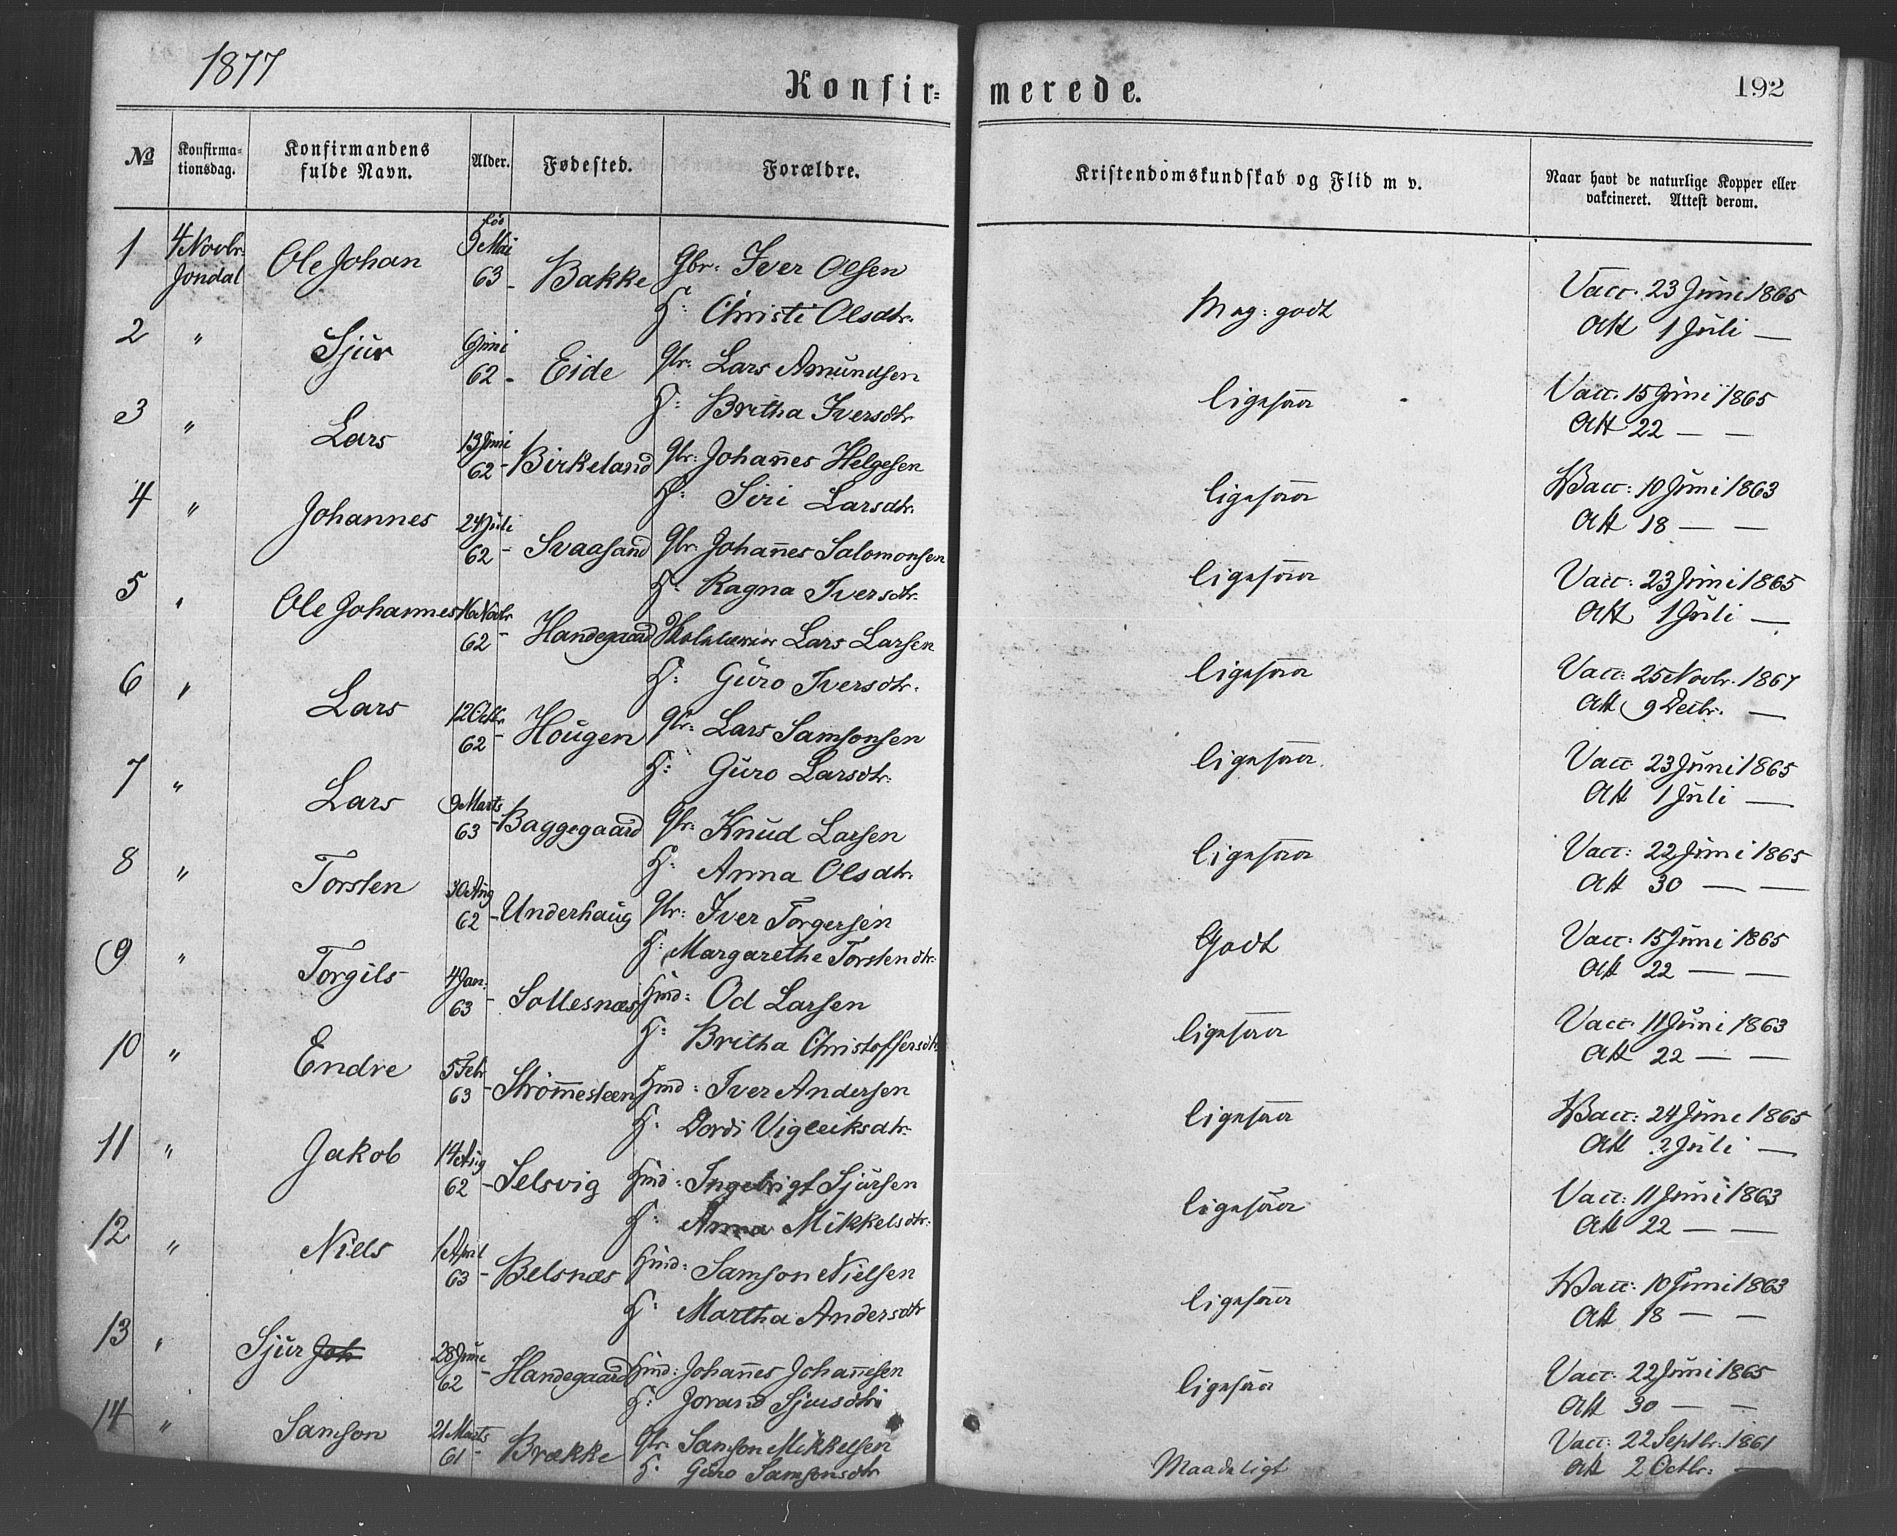 1877
Konfir=
merede.
192
No
Konfirma-
tionsdag.
Konfirmandens
fulde Navn.
Alder.
Fødested.
Forældre.
Kristendomskundskab og Flid m v.
Naar havt de naturlige Kopper eller
vakcineret. Attest derom.
1 4 Novbr. Jondal Ole Johan fød 9 Mai 63 - Bakke Gbr: Iver Olsen
H: Christi Olsdtr.
Mag: godt
Vacc: 23 Juni 1865
Att 1 Juli —
2 " Sjur 6 Juni 62 - Eide Gbr: Lars Amundsen
H: Britha Iversdtr.
ligesaa
Vacc: 15 Juni 1865
Att 22 — —
3 " Lars 13 Juni 62 - Birkeland Gbr: Johannes Helgesen
H: Siri Larsdtr.
ligesaa
Vacc: 10 Juni 1863
Att 18 — —
4 " Johannes 24 Juli 62 - Svaasand Gbr: Johannes Salomonsen
H: Ragna Iversdtr.
ligesaa
Vacc: 23 Juni 1865
Att 1 Juli —
5 " Ole Johannes 16 Novbr 62 - Handegaard Skolelærer Lars Larsen
H: Guro Iversdtr.
ligesaa
Vacc: 25 Novbr. 1867
Att 9 Decbr. —
6 " Lars 12 Octbr 62 - Hougen Gbr: Lars Samsonsen
H: Guro Larsdtr.
ligesaa
Vacc: 23 Juni 1865
Att 1 Juli —
7 " Lars 9 Marts 63 - Baggegaard Gbr: Knud Larsen
H: Anna Olsdtr.
ligesaa
Vacc: 22 Juni 1865
Att 30 — —
8 " Torsten 30 Aug 62 - Underhaug Gbr: Iver Torgersen
H: Margarethe Torstendtr.
Godt
Vacc: 15 Juni 1865
Att 22 — —
9 " Torgils 4 Jan. 63 - Sollesnæs Hmd: Od Larsen
H: Britha Christoffersdtr.
ligesaa
Vacc: 11 Juni 1863
Att 22 — —
10 " Endre 5 Febr 63 - Strømmesteen Hmd: Iver Andersen
H: Dordi Vigleiksdtr.
ligesaa
Vacc: 24 Juni 1865
Att 2 Juli —
11 " Jakob 14 Aug 62 - Selsvig Hmd: Ingebrigt Sjursen
H: Anna Mikkelsdtr.
ligesaa
Vacc: 11 Juni 1863
Att 22 — —
12 " Niels 1 April 63 - Belsnæs Hmd: Samson Nielsen
H: Martha Andersdtr
ligesaa
Vacc: 10 Juni 1863
Att 18 — —
13 " Sjur Joh 28 Juni 62 - Handegaard Hmd: Johannes Johannesen
H: Jorand Sjursdtr
ligesaa
Vacc: 22 Juni 1865
Att 30 — —
14 " Samson 21 Marts 61 - Brække Gbr. Samson Mikkelsen
H: Guro Samsonsdtr
Maadeligt
Vacc: 22 Septbr. 1861
Att 2 Octbr: —